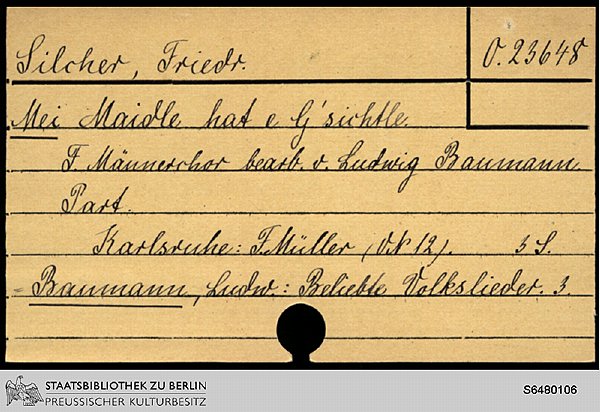 Silcher, Friedr.
O. 23648
Mei Maidle hat e G'sichtle
F. Männerchor bearb. v. Ludwig Baumann
Part.
Karlsruhe: F. Müller (VN 12). 3 S.
Baumann, Ludw.: Beliebte Volkslieder. 3.
STAATSBIBLIOTHEK ZU BERLIN
PREUSSISCHER KULTURBESITZ
S6480106